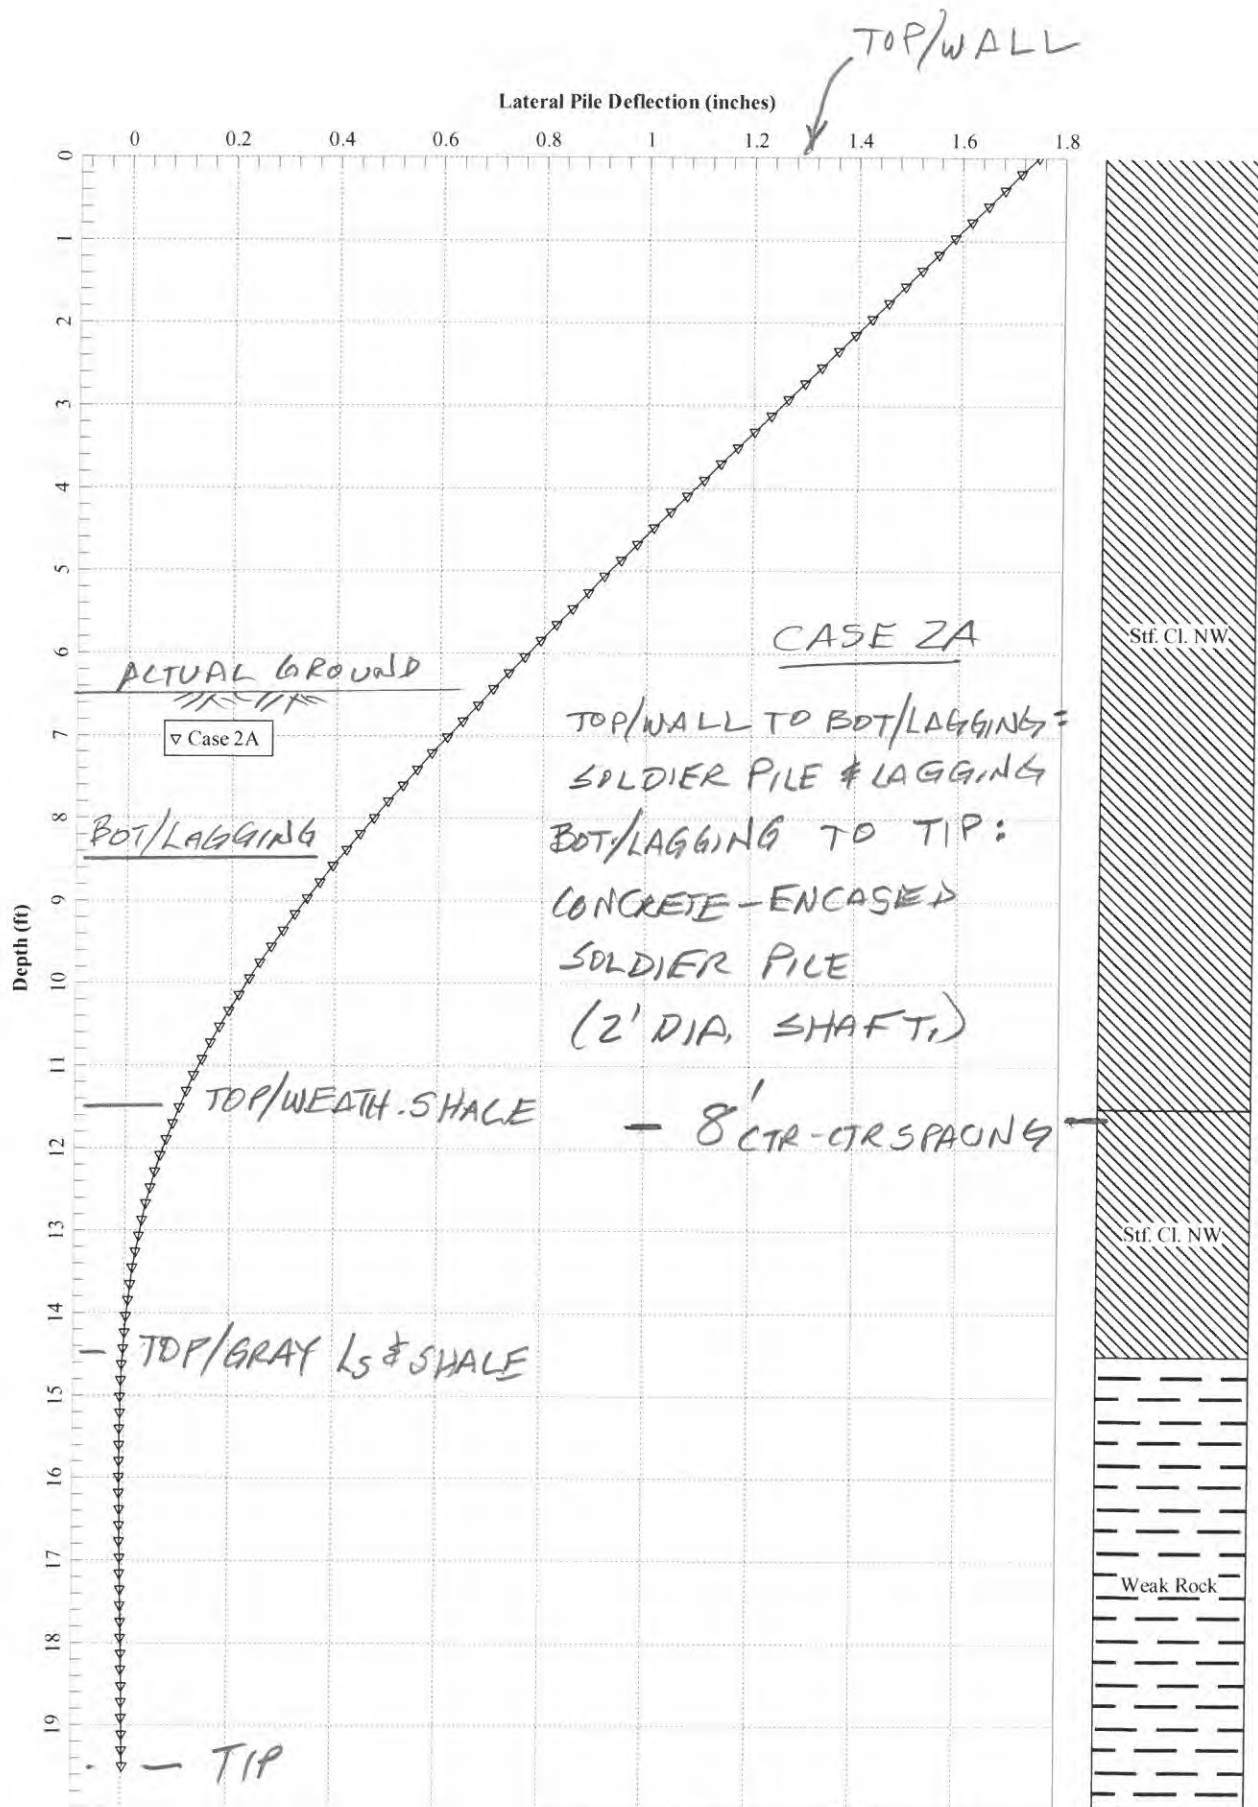 TOP/WALL
Lateral Pile Deflection (inches)
0 0.2 0.4 0.6 0.8 1 1.2 1.4 1.6 1.8
0
1
2
3
4
5
6
7
8
9
10
11
12
13
14
15
16
17
18
19
Depth (ft)
ACTUAL GROUND
Case 2A
BOT/LAGGING
CASE 2A
TOP/WALL TO BOT/LAGGING:
SOLDIER PILE & LAGGING
BOT./LAGGING TO TIP:
CONCRETE-ENCASED
SOLDIER PILE
(2' DIA. SHAFT.)
TOP/WEATH. SHALE
8' CTR-CTR SPACING
TOP/GRAY LS & SHALE
TIP
Stf. Cl. NW
Stf. Cl. NW
Weak Rock